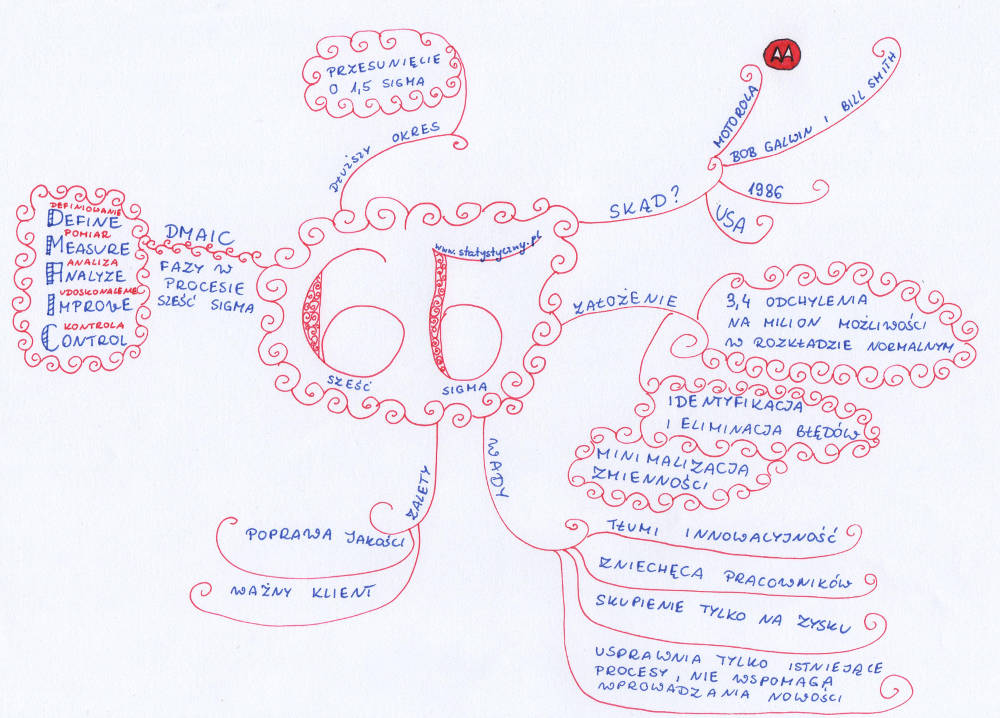 PRZESUNIĘCIE
O 1,5 SIGMA
DŁUŻSZY OKRES
MOTOROLA
BOB GALWIN I BILL SMITH
1986
USA
SKĄD?
DEFINIOWANIE
DEFINE
POMIAR
MEASURE
ANALIZA
ANALYZE
UDOSKONALENIE
IMPROWE
KONTROLA
CONTROL
DMAIC
FAZY W
PROCESIE
SZEŚĆ SIGMA
www.statystyczny.pl
66
SZEŚĆ SIGMA
ZAŁOŻENIE
3,4 ODCHYLENIA
NA MILION MOŻLIWOŚCI
W ROZKŁADZIE NORMALNYM
IDENTYFIKACJA
I ELIMINACJA BŁĘDÓW
MINIMALIZACJA
ZMIENNOŚCI
ZALETY
POPRAWA JAKOŚCI
WAŻNY KLIENT
WADY
TŁUMI INNOWACYJNOŚĆ
ZNIECHĘCA PRACOWNIKÓW
SKUPIENIE TYLKO NA ZYSKU
USPRAWNIA TYLKO ISTNIEJĄCE
PROCESY, NIE WSPOMAGA
WPROWADZANIA NOWOŚCI